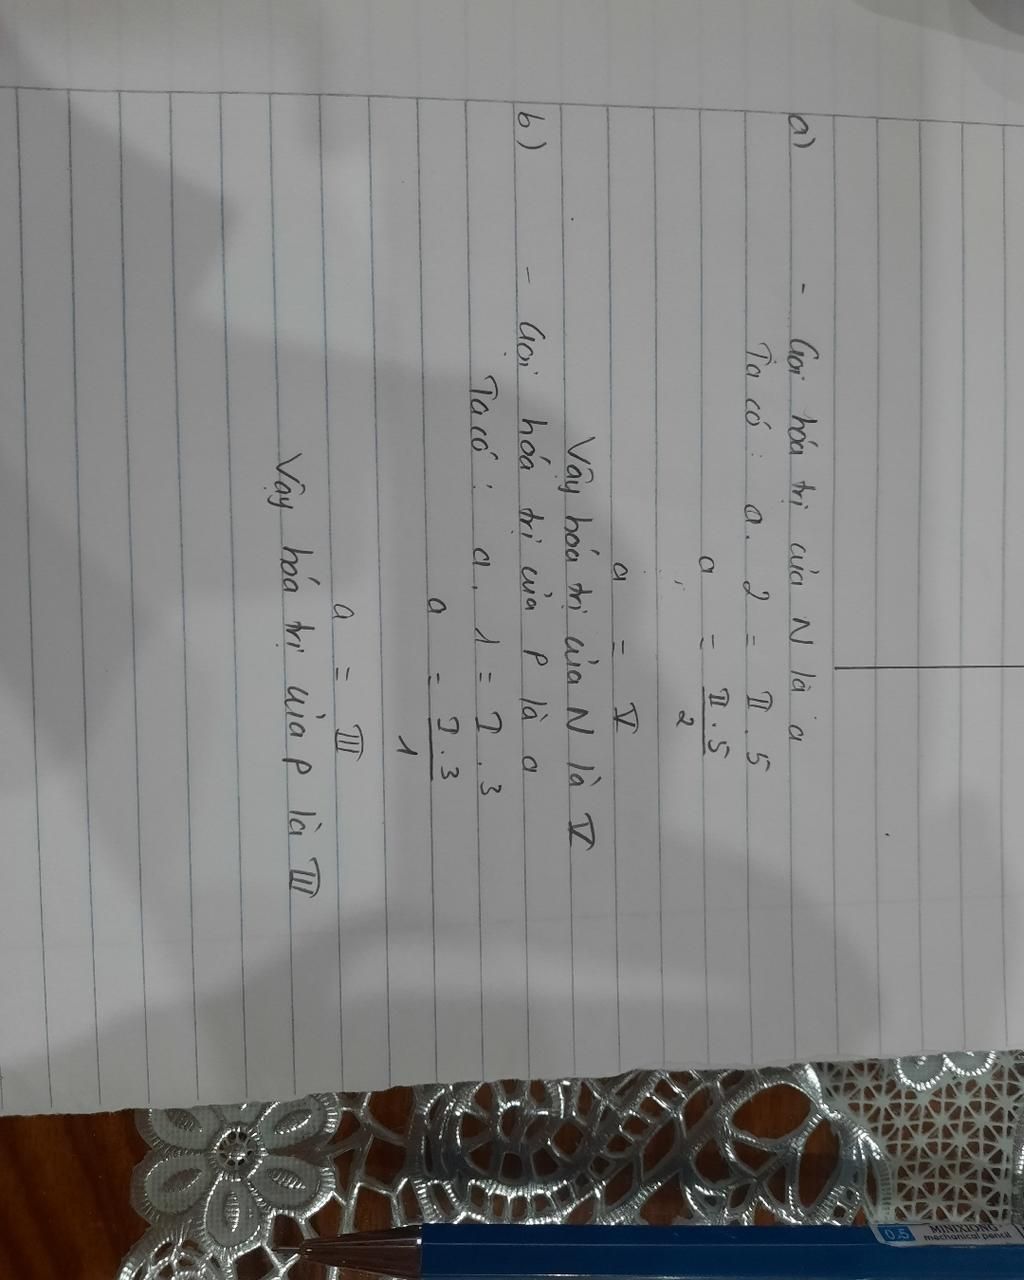 a) - Gọi hóa trị của N là a
Ta có: a. 2 = II . 5
a = II . 5
2
a = V
Vậy hoá trị của N là V
b) - Gọi hoá trị của P là a
Ta có: a. 1 = I . 3
a = I . 3
1
a = III
Vậy hóa trị của P là III
0.5 MINIXIONG
mechanical pencil